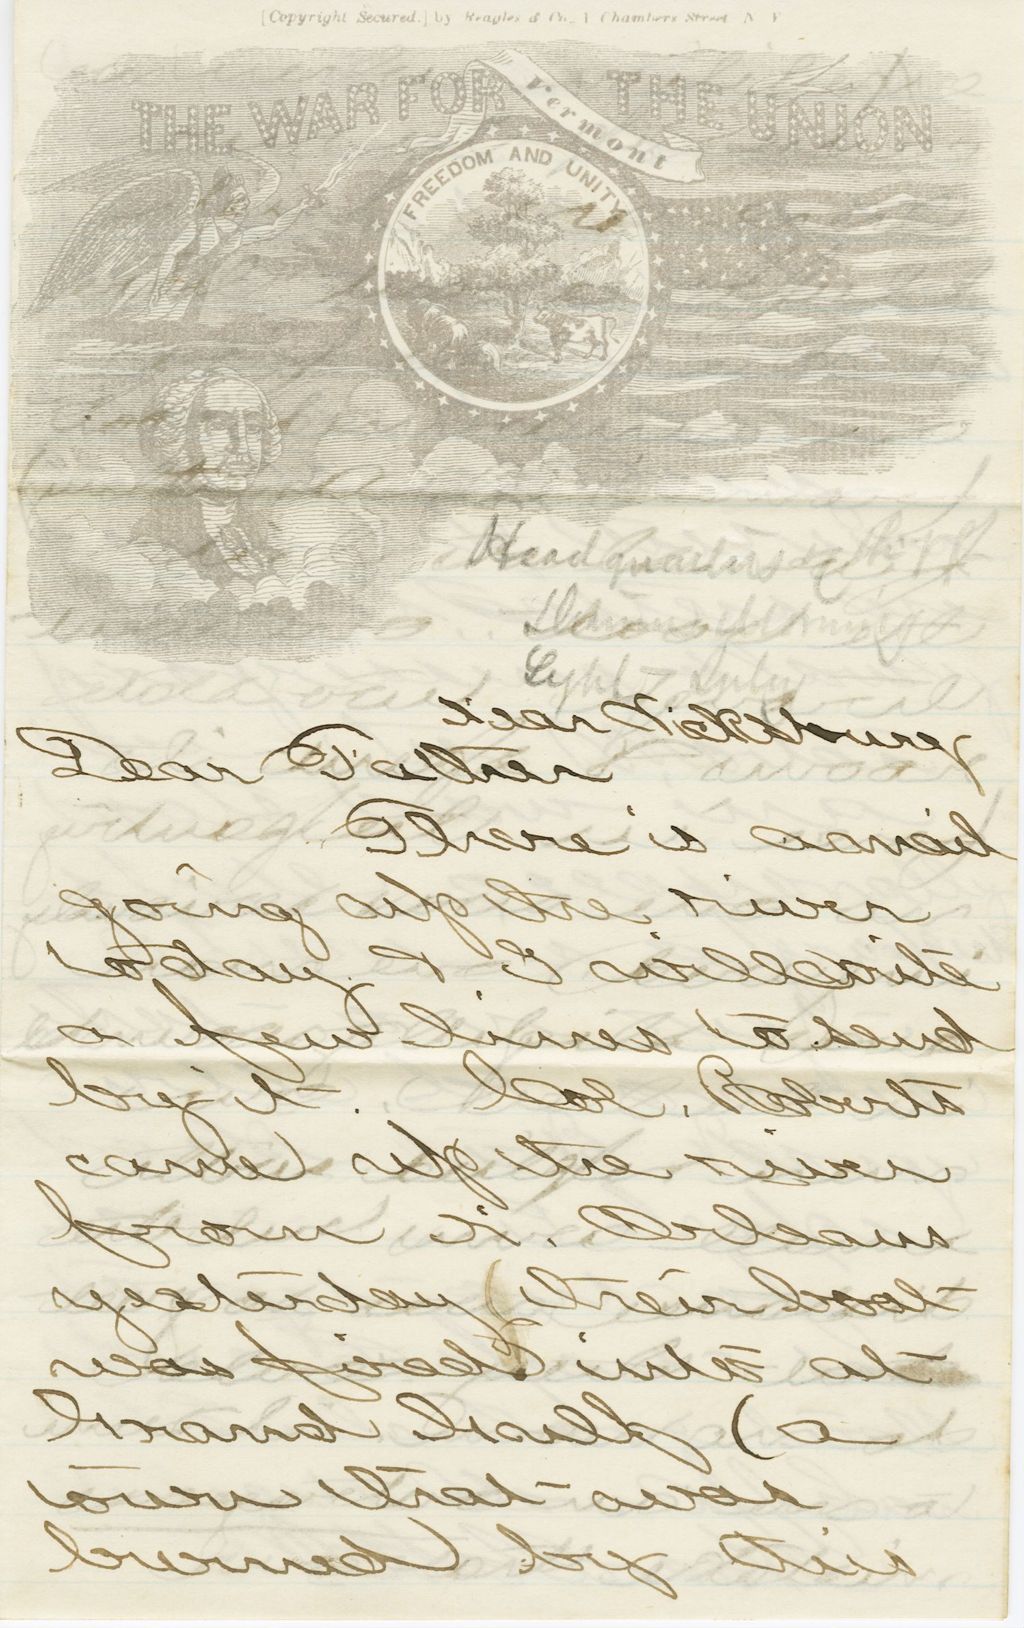 [Copyright Secured.] by Reagles & Co., 1 Chambers Street N Y
THE WAR FOR THE UNION
Vermont
FREEDOM AND UNITY
Head quarters
Sept
near Vicksburg
Dear Father
There is a mail
going up the river
today & I will write
a few lines to send
by it. Col. Roberts
came up the river
from N. Orleans
yesterday (their boat
was fired into at
Grand Gulf (a
town that was
burned by this